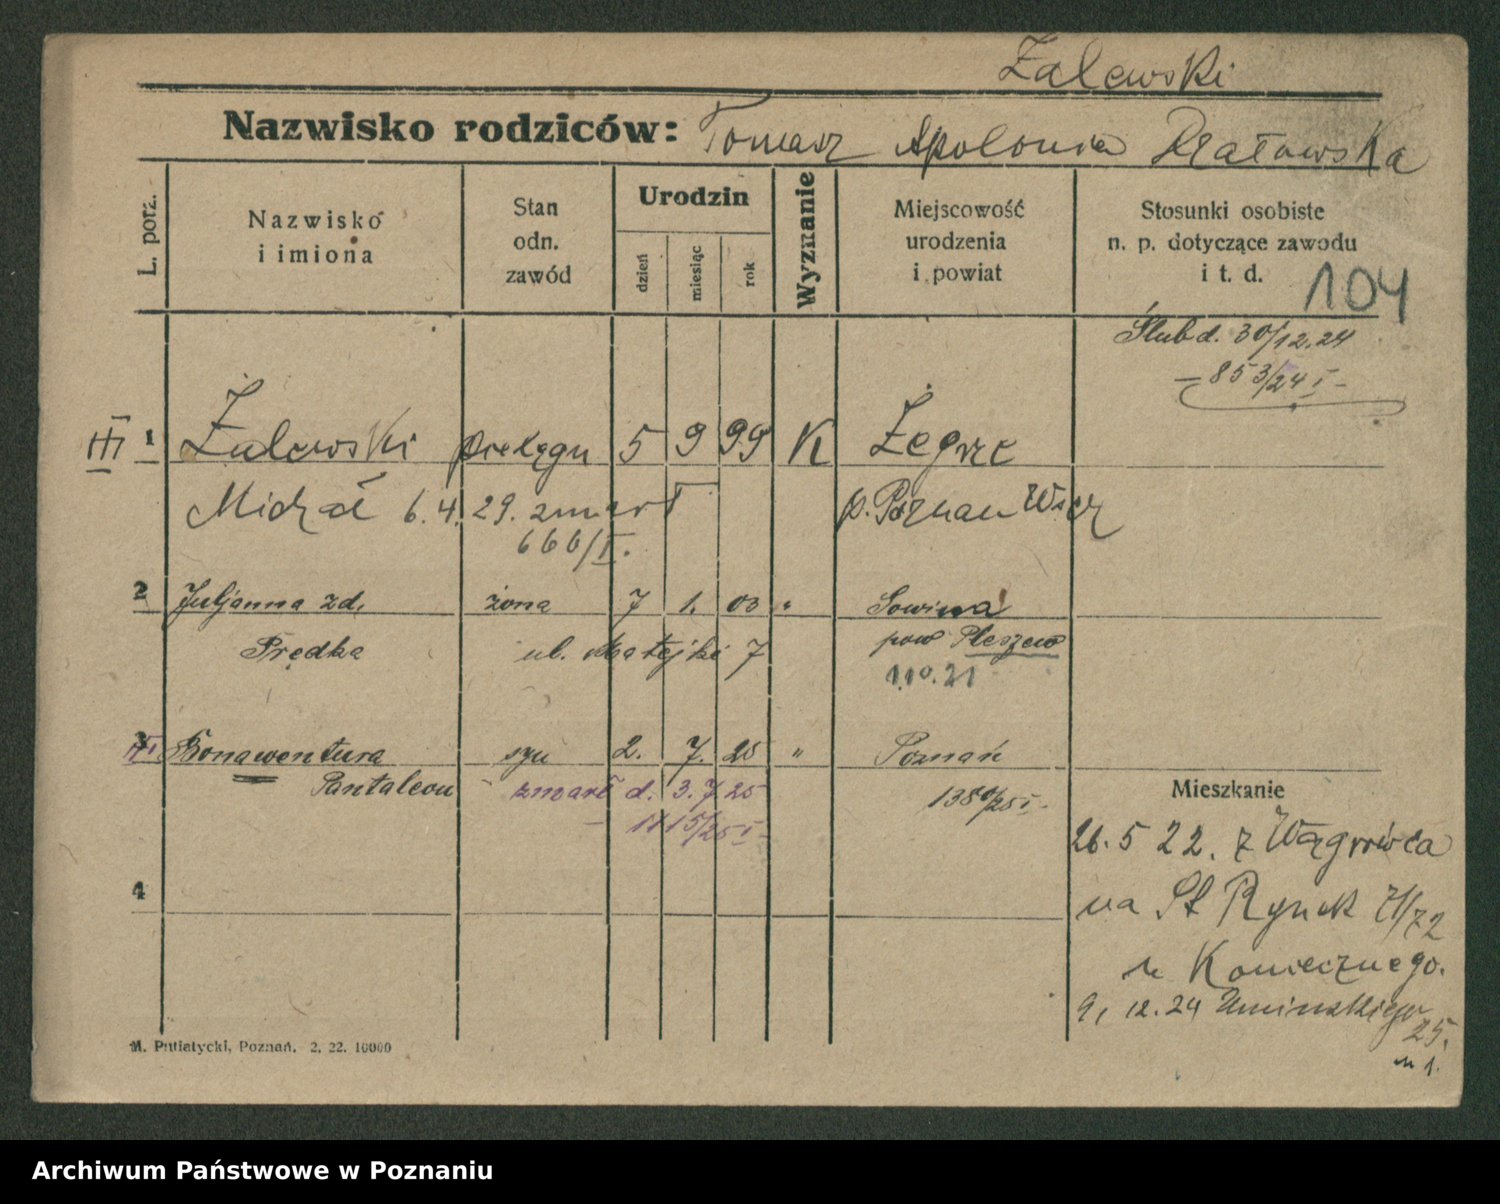 Żalewski
Nazwisko rodziców: Tomasz Apolonia Ratowska
L. porz.
Nazwisko
i imiona
Stan
odn.
zawód
Urodzin
dzień
miesiąc
rok
Wyznanie
Miejscowość
urodzenia
i powiat
Stosunki osobiste
n. p. dotyczące zawodu
i t. d.
104
Ślub d. 30/12.24
– 853/24 I –
III 1 Żalewski pielęgn 5 9 99 K Żegrze
Michał 6.4.29. zmarł p. Poznań Wsch
666/I.
2 Juljanna zd. żona 7 1. 03 " Sowina
Prędka ul. Matejki 7 pow Pleszew
1.10.21
3 Bonawentura syn 2. 7. 25 " Poznań
Pantaleon zmarł d. 3.7 25 1380/25 I –
– 1115/25 I –
Mieszkanie
26.5 22. z Wągrówca
na St Rynek 71/72
u Koniecznego.
4
9, 12.24 Umińskiego
25.
m 1.
M. Putiatycki, Poznań. 2. 22. 10000
Archiwum Państwowe w Poznaniu